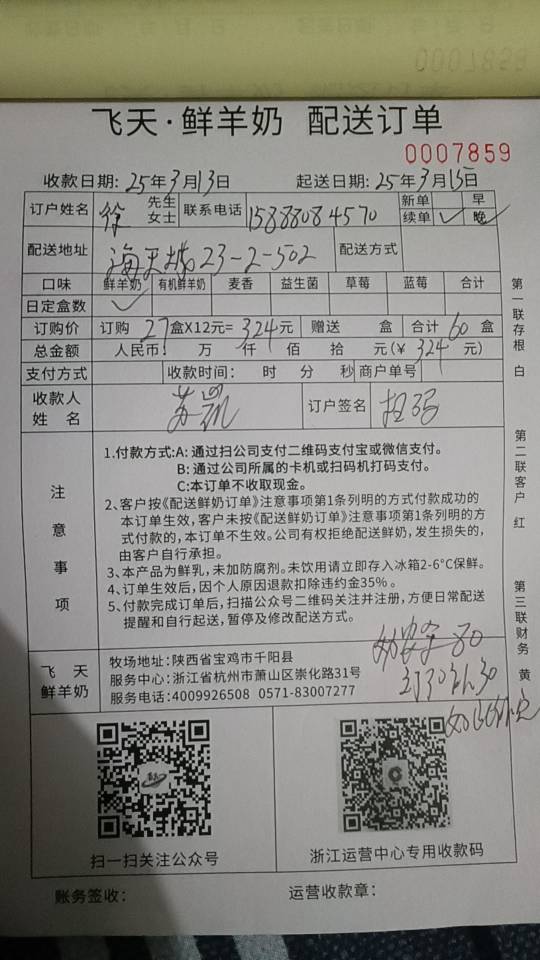 飞天·鲜羊奶 配送订单
0007859
收款日期: 25年3月13日 起送日期: 25年3月15日
订户姓名 徐 先生 女士 联系电话 15888084570 新单 早 续单 ✓ 晚 ✓
配送地址 海天城23-2-502 配送方式
口味 鲜羊奶 有机鲜羊奶 麦香 益生菌 草莓 蓝莓 合计
日定盒数 ✓
订购价 订购 27 盒X12元= 324 元 赠送 盒 合计 60 盒
总金额 人民币: 万 仟 佰 拾 元(￥ 324 元)
支付方式 收款时间: 时 分 秒 商户单号
收款人姓名 苏凯 订户签名 扫码
注意事项
1.付款方式:A: 通过扫公司支付二维码支付宝或微信支付。
B: 通过公司所属的卡机或扫码机打码支付。
C:本订单不收取现金。
2、客户按《配送鲜奶订单》注意事项第1条列明的方式付款成功的
本订单生效，客户未按《配送鲜奶订单》注意事项第1条列明的方
式付款的，本订单不生效。公司有权拒绝配送鲜奶，发生损失的，
由客户自行承担。
3、本产品为鲜乳，未加防腐剂。未饮用请立即存入冰箱2-6°C保鲜。
4、订单生效后，因个人原因退款扣除违约金35%。
5、付款完成订单后，扫描公众号二维码关注并注册，方便日常配送
提醒和自行起送，暂停及修改配送方式。
飞天鲜羊奶
牧场地址:陕西省宝鸡市千阳县
服务中心:浙江省杭州市萧山区崇化路31号
服务电话:4009926508 0571-83007277
扫一扫关注公众号
浙江运营中心专用收款码
账务签收: 运营收款章:
第一联存根 白
第二联客户 红
第三联财务 黄